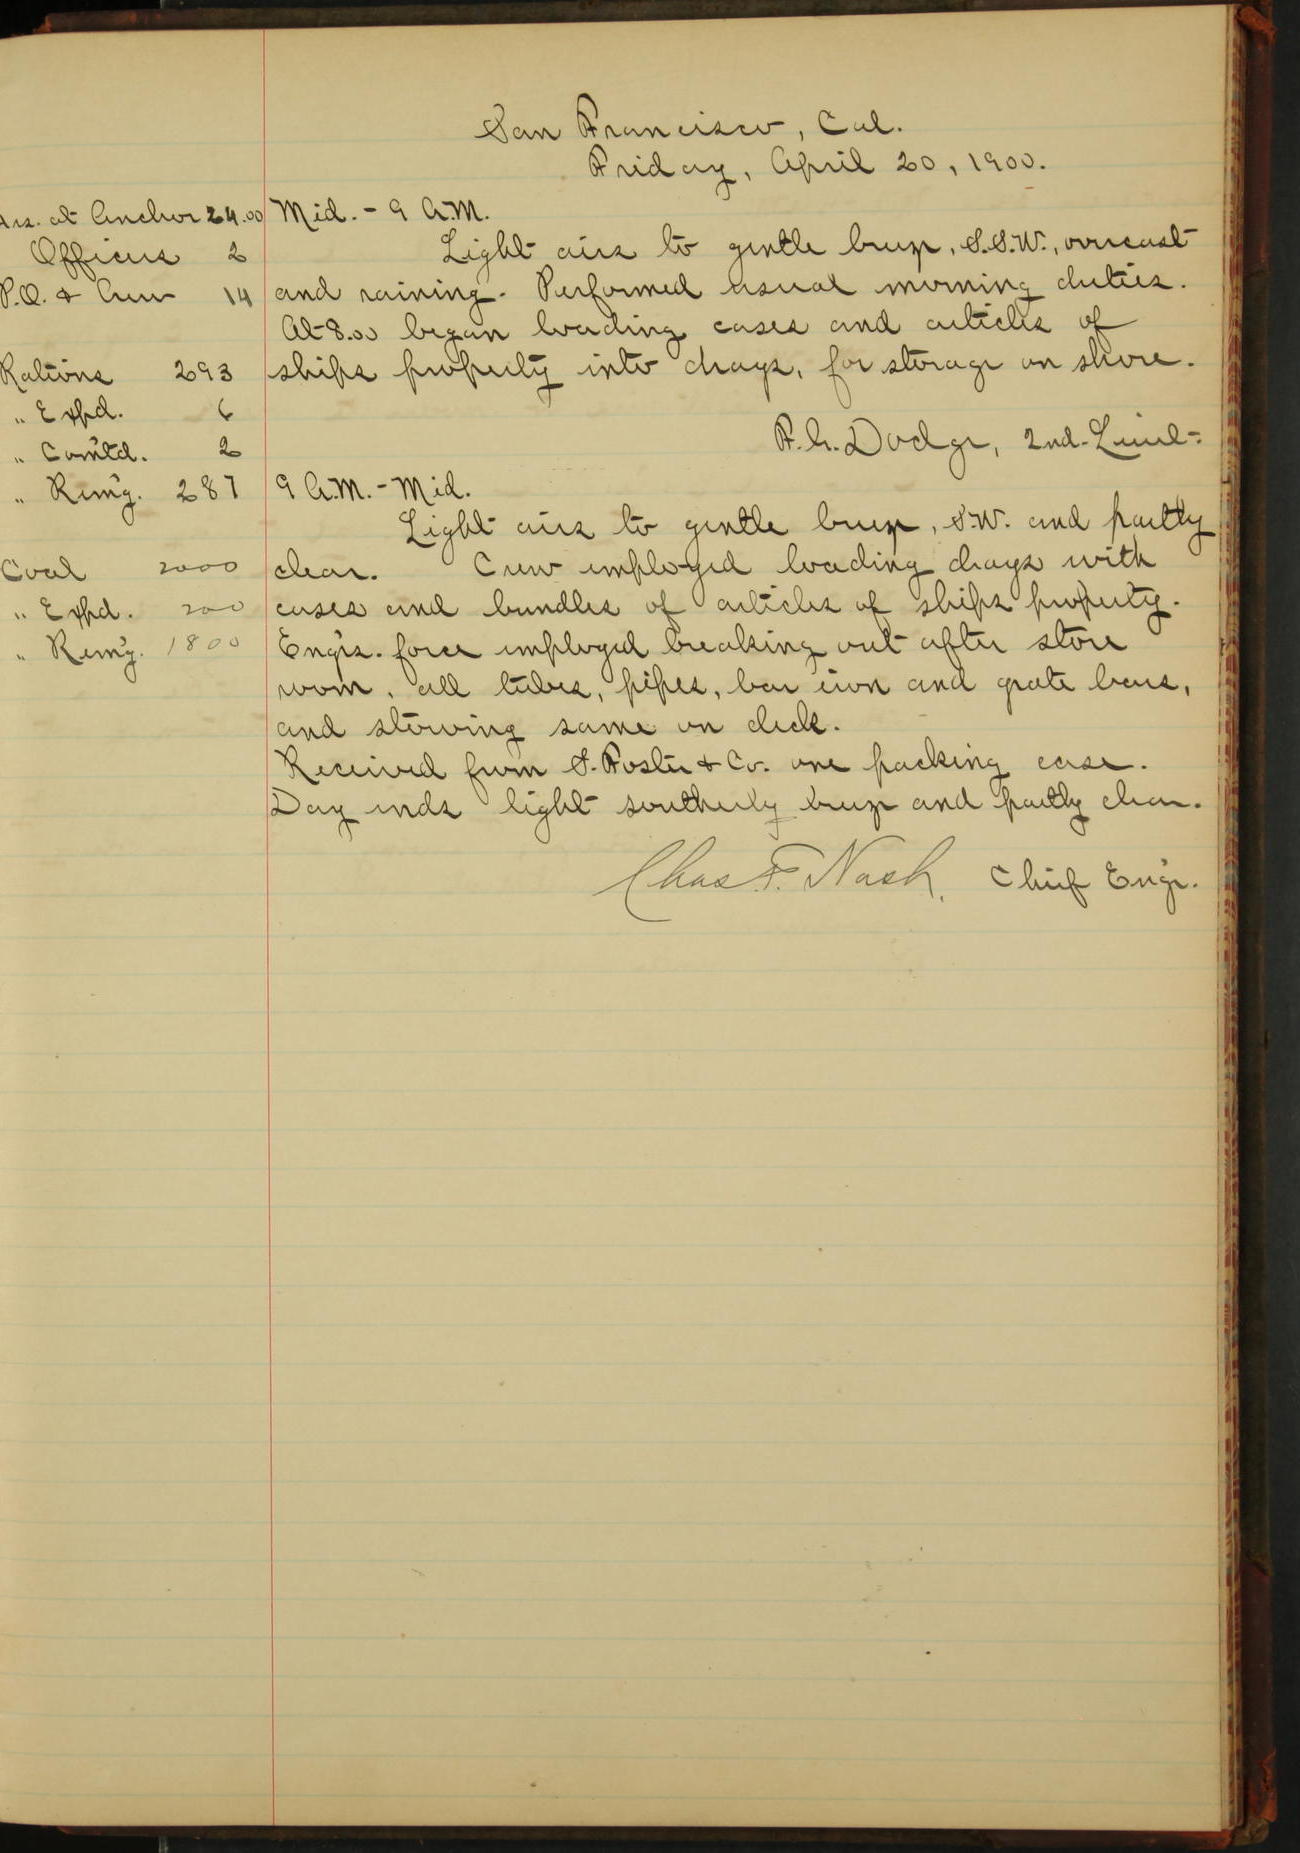 San Francisco, Cal.
Friday, April 20, 1900.
Hrs. at Anchor 24.00
Officers 2
P.O. & Crew 14
Rations 293
" Exp'd. 6
" Com'td. 2
" Rem'g. 287
Coal 2000
" Exp'd. 200
" Rem'g. 1800
Mid. - 9 A.M.
Light airs to gentle breeze, S.S.W., overcast
and raining. Performed usual morning duties.
At 8.00 began loading cases and articles of
ships property into drays, for storage on shore.
F.G. Dodge, 2nd. Lieut.
9 A.M. - Mid.
Light airs to gentle breeze, S.W. and partly
clear. Crew employed loading drays with
cases and bundles of articles of ships property.
Eng'rs. force employed breaking out after store
room, all tubes, pipes, bar iron and grate bars,
and stowing same on deck.
Received from S. Foster & Co. one packing case.
Day ends light southerly breeze and partly clear.
Chas. F. Nash, Chief Eng'r.